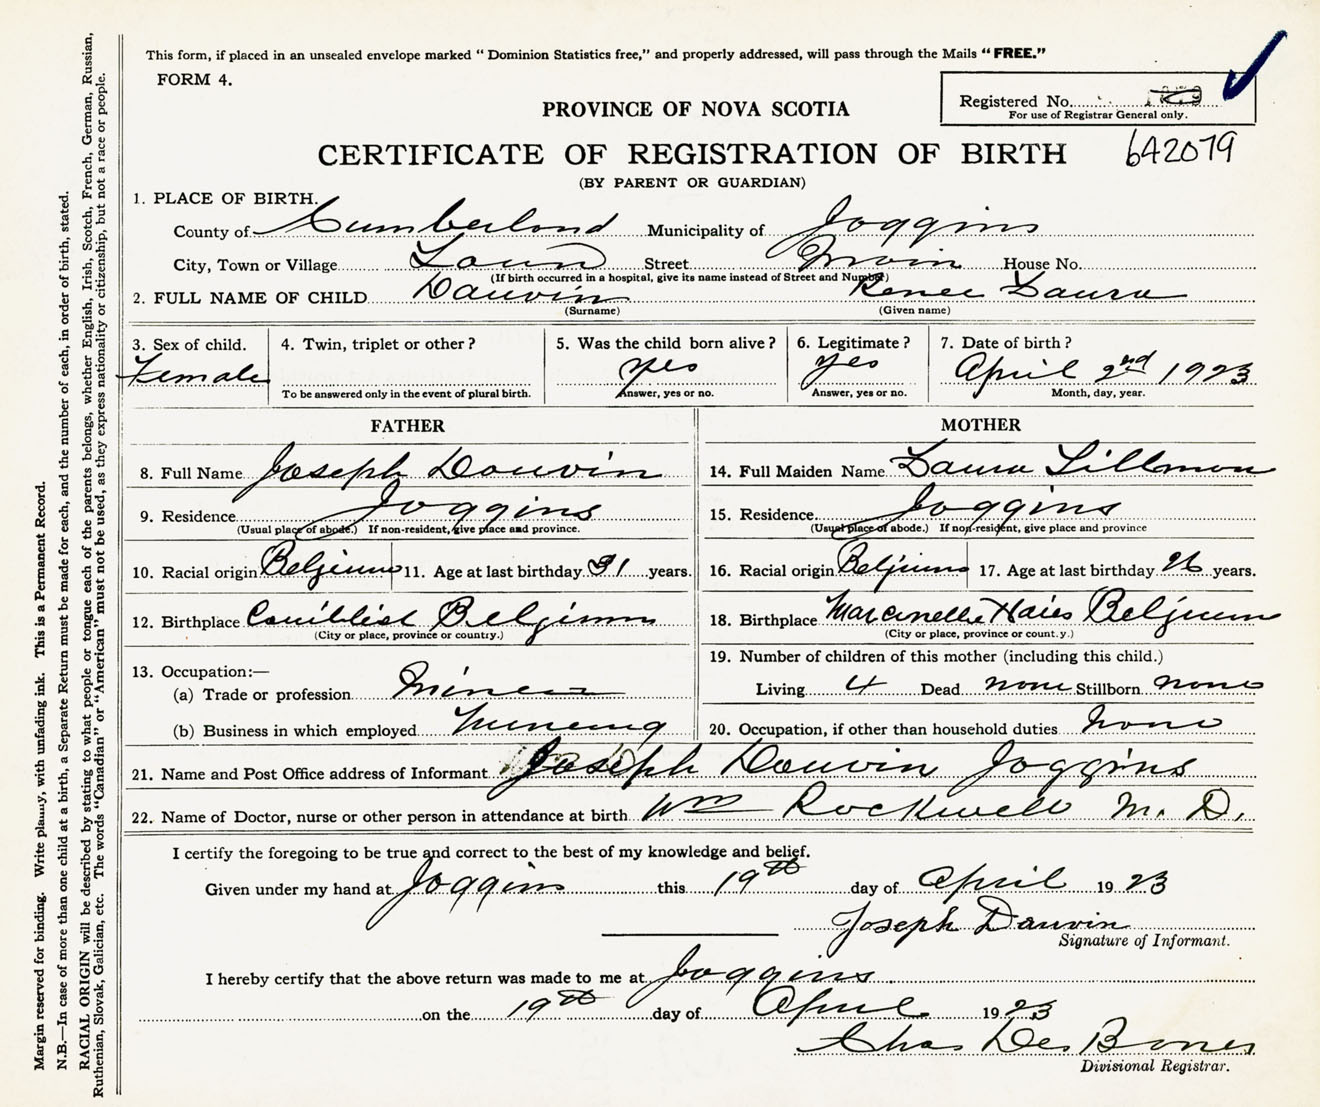 This form, if placed in an unsealed envelope marked "Dominion Statistics free," and properly addressed, will pass through the Mails "FREE."
FORM 4.
Registered No.
For use of Registrar General only.
PROVINCE OF NOVA SCOTIA
642079
CERTIFICATE OF REGISTRATION OF BIRTH
(BY PARENT OR GUARDIAN)
1. PLACE OF BIRTH.
County of Cumberland Municipality of Joggins
City, Town or Village Town Street Irwin House No.
(If birth occurred in a hospital, give its name instead of Street and Number)
2. FULL NAME OF CHILD Dauvin Renee Laura
(Surname) (Given name)
3. Sex of child. 4. Twin, triplet or other? 5. Was the child born alive? 6. Legitimate? 7. Date of birth?
Female yes yes April 2nd 1923
To be answered only in the event of plural birth. Answer, yes or no. Answer, yes or no. Month, day, year.
FATHER MOTHER
8. Full Name Joseph Dauvin 14. Full Maiden Name Laura Tillmon
9. Residence Joggins 15. Residence Joggins
(Usual place of abode.) If non-resident, give place and province. (Usual place of abode.) If non-resident, give place and province
10. Racial origin Belgium 11. Age at last birthday 31 years. 16. Racial origin Belgium 17. Age at last birthday 26 years.
12. Birthplace Belgium 18. Birthplace Marcinelle Haies Belgium
(City or place, province or country.) (City or place, province or count.y.)
13. Occupation:— 19. Number of children of this mother (including this child.)
(a) Trade or profession Miner Living 4 Dead none Stillborn none
(b) Business in which employed Mineing 20. Occupation, if other than household duties None
21. Name and Post Office address of Informant Joseph Dauvin Joggins
22. Name of Doctor, nurse or other person in attendance at birth Wm Rockwell M. D.
I certify the foregoing to be true and correct to the best of my knowledge and belief.
Given under my hand at Joggins this 19th day of April 1923
Joseph Dauvin
Signature of Informant.
I hereby certify that the above return was made to me at Joggins
on the 19th day of April 1923
Chas Des Bones
Divisional Registrar.
Margin reserved for binding. Write plainly, with unfading ink. This is a Permanent Record.
N.B.—In case of more than one child at a birth, a Separate Return must be made for each, and the number of each, in order of birth, stated.
RACIAL ORIGIN will be described by stating to what people or tongue each of the parents belongs, whether English, Irish, Scotch, French, German, Russian,
Ruthenian, Slovak, Galician, etc. The words "Canadian" or "American" must not be used, as they express nationality or citizenship, but not a race or people.